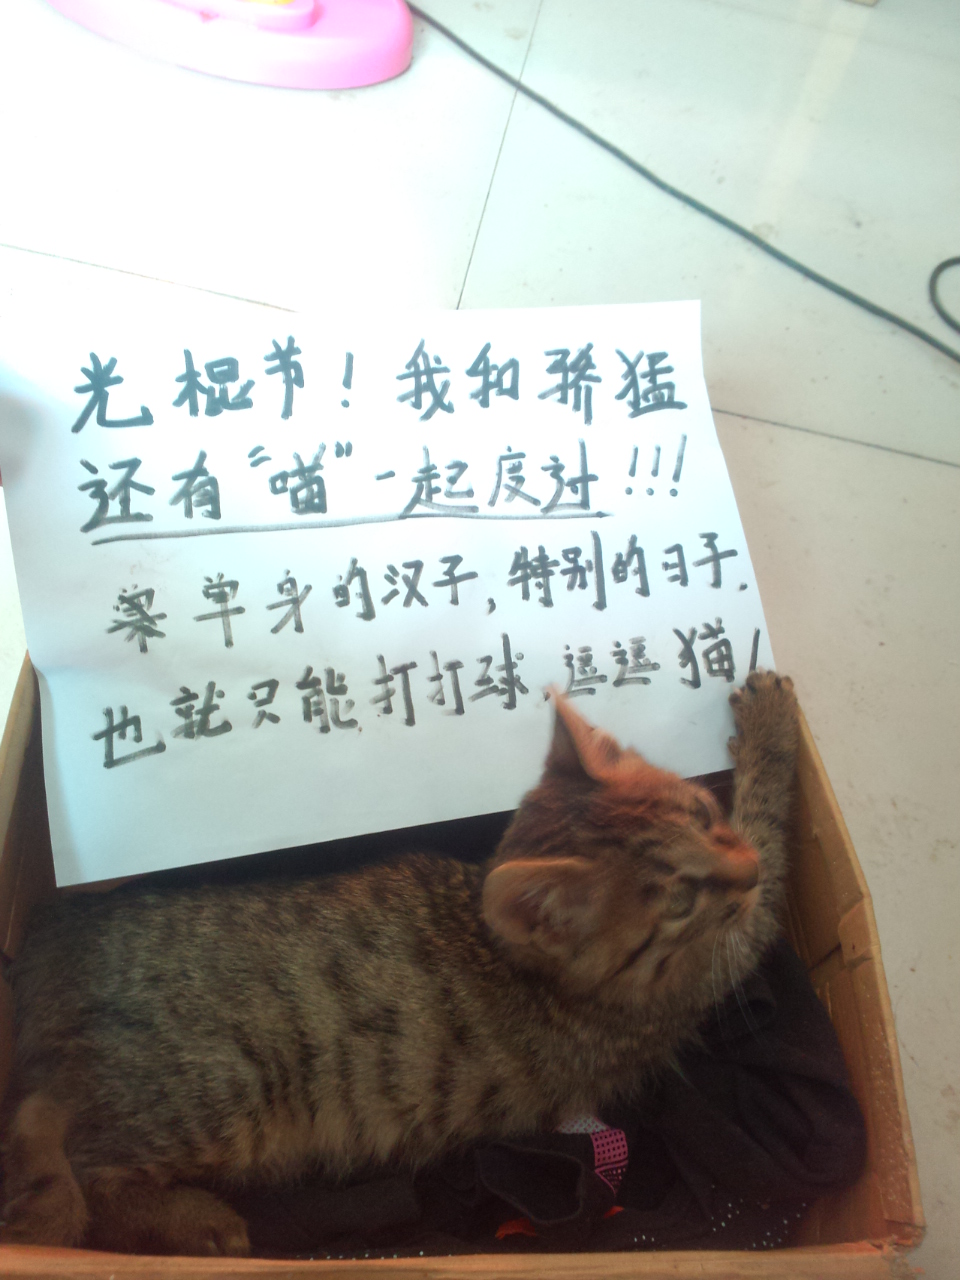 光棍节！我和骄猛
还有“喵”一起度过!!!
单身的汉子，特别的日子.
也就只能打打球、逗逗猫！